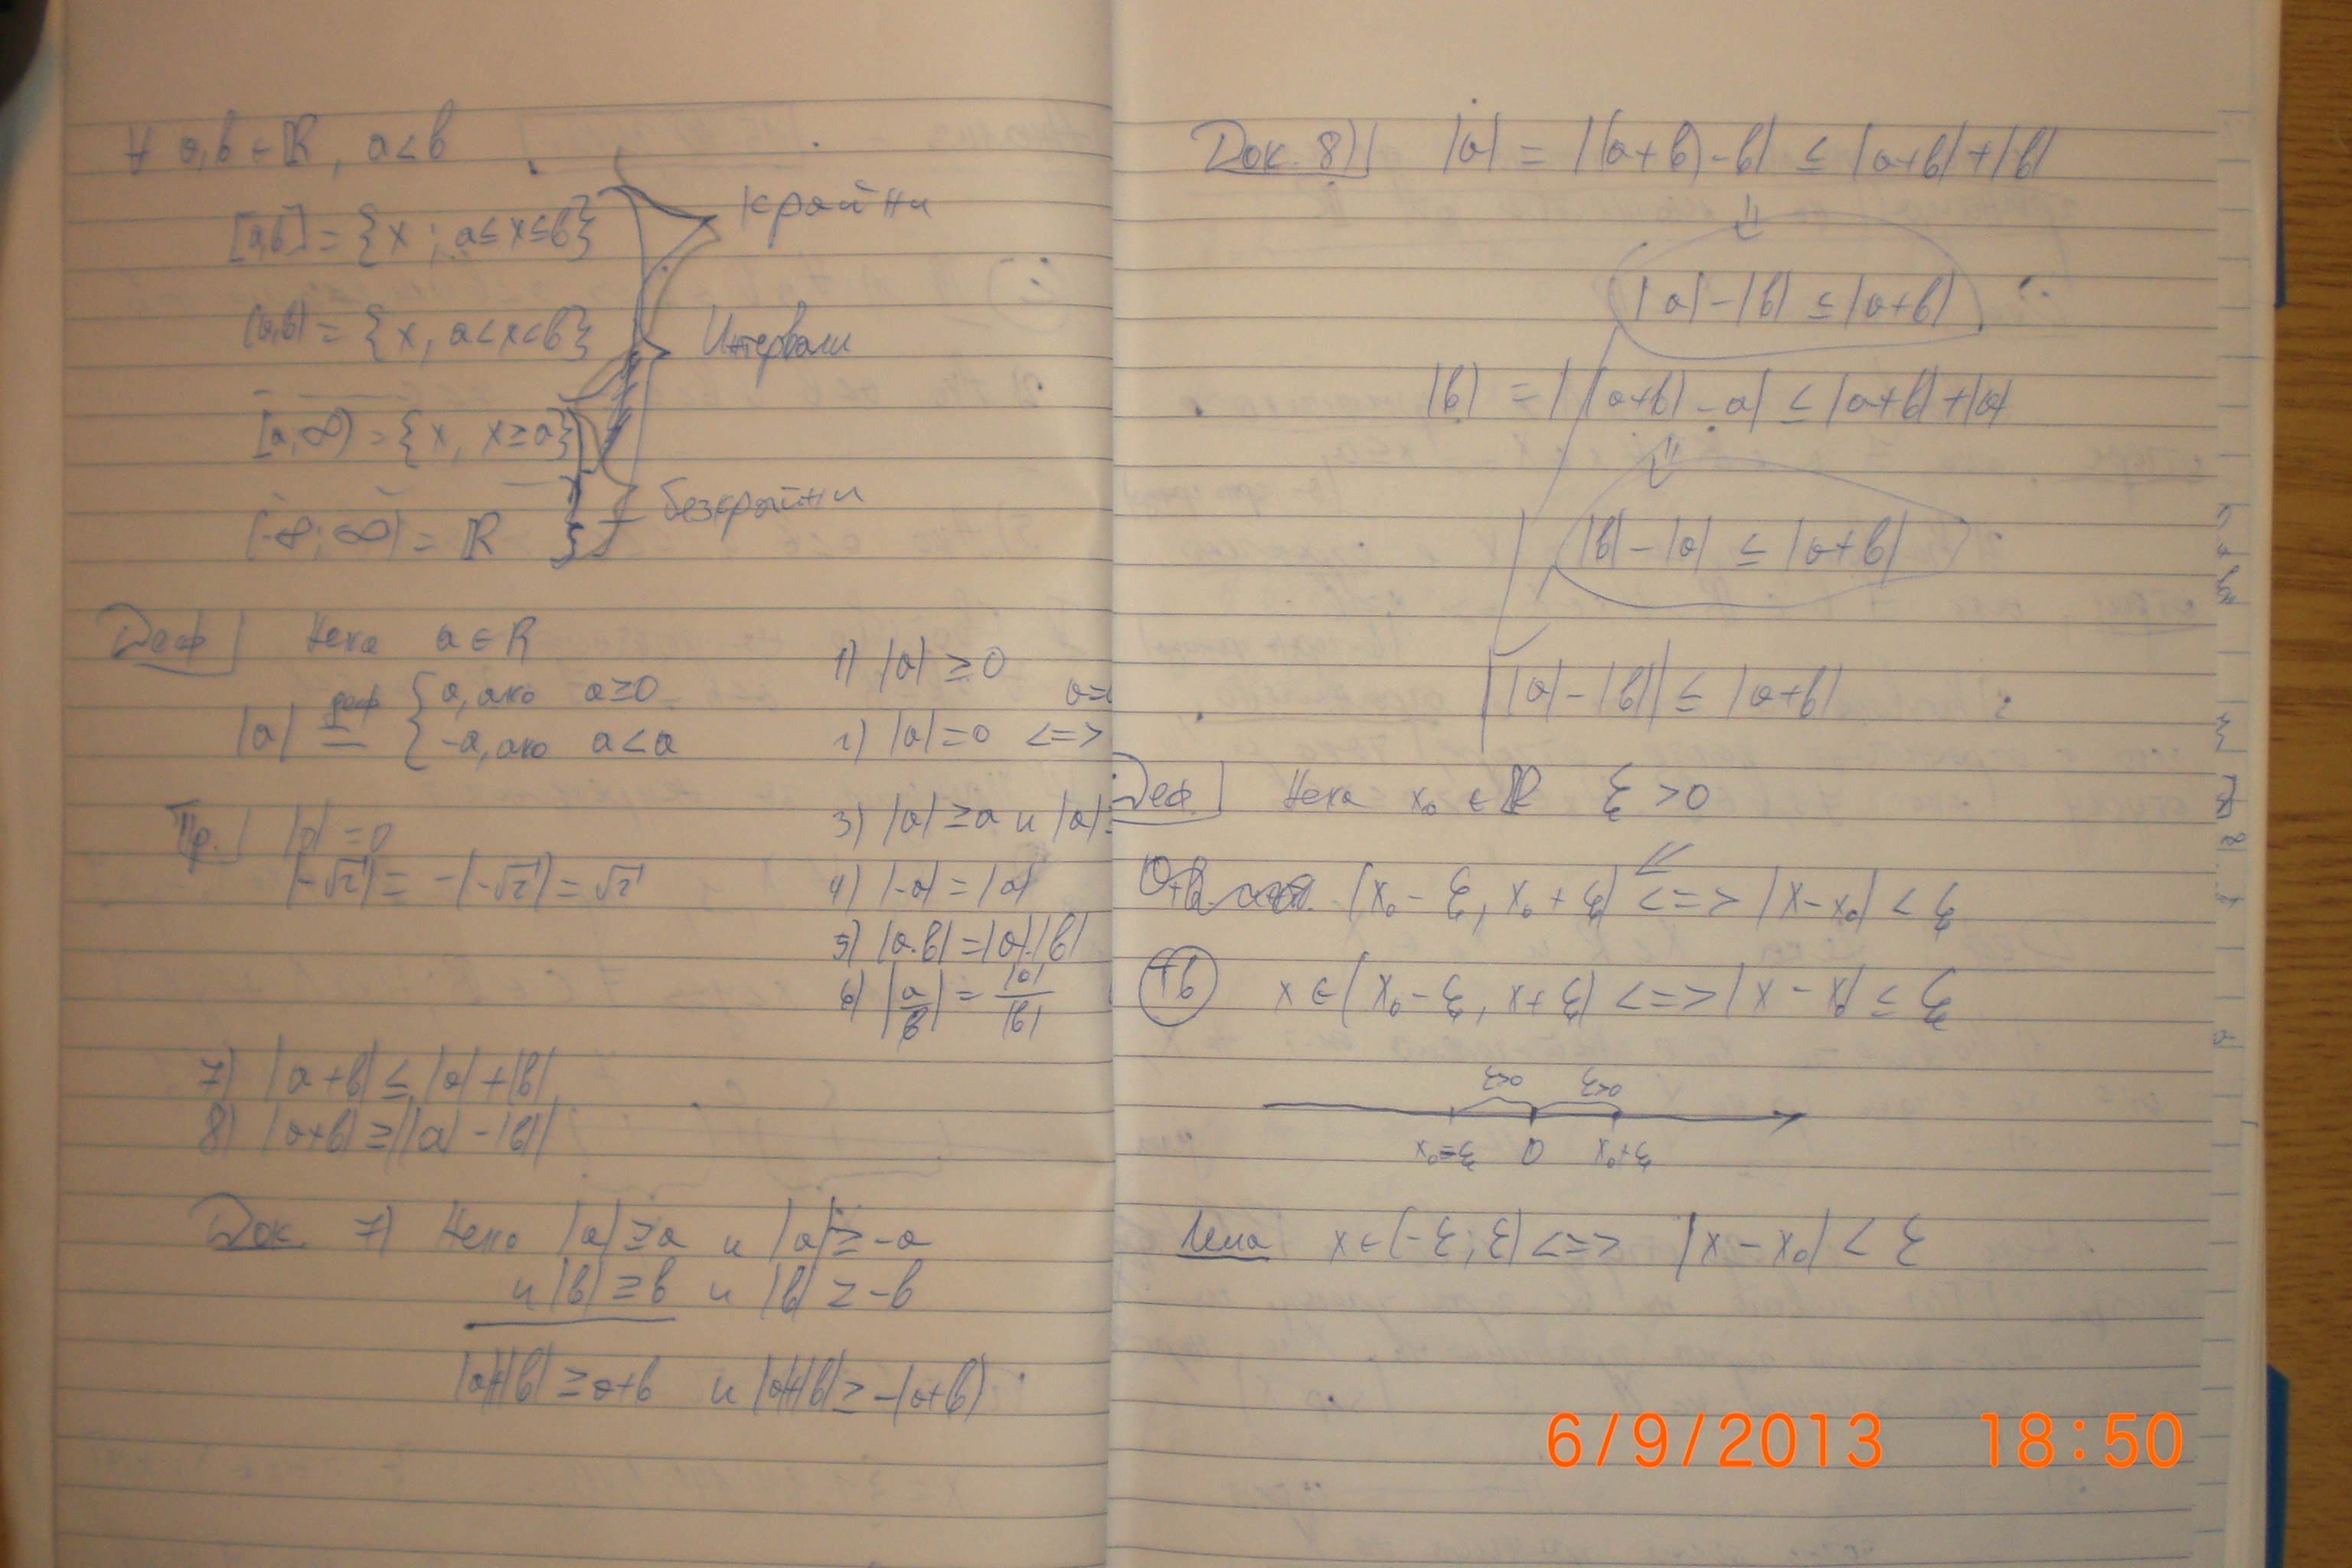 ∀ a,b ∈ ℝ, a<b
[a,b] = {x ; a≤x≤b}
крайни
(a,b) = {x, a<x<b}
Интервали
[a,∞) = {x, x≥a}
безкрайни
(-∞;∞) = ℝ
Деф Нека a∈R
|a| деф = { a, ако a≥0
-a, ако a<a
Пр. |0| = 0
|-√2| = -(-√2) = √2
1) |a| ≥ 0
a=
2) |a|=0 <=>
3) |a| ≥a и |a|
4) |-a| = |a|
5) |a.b| = |a|.|b|
6) |a/b| = |a|/|b|
7) |a+b| ≤ |a|+|b|
8) |a+b| ≥ ||a|-|b||
Док. 7) Нека |a|≥a и |a|≥-a
и |b|≥b и |b|≥-b
|a|+|b| ≥a+b и |a|+|b|≥ -(a+b)
Док. 8) |a| = |(a+b)-b| ≤ |a+b|+|b|
⇓
|a|-|b| ≤ |a+b|
|b| = |(a+b)-a| ≤ |a+b|+|a|
⇓
|b|-|a| ≤ |a+b|
||a|-|b|| ≤ |a+b|
Деф. Нека x₀ ∈ ℝ ξ >0
(x₀-ξ, x₀+ξ) <=> |x-x₀| < ξ
Тв x∈(x₀-ξ, x+ξ) <=> |x-x₀| ≤ ξ
ξ>0 ξ>0
x₀=ξ 0 x₀+ξ
Лема x∈(-ξ;ξ) <=> |x-x₀| < ξ
6/9/2013 18:50